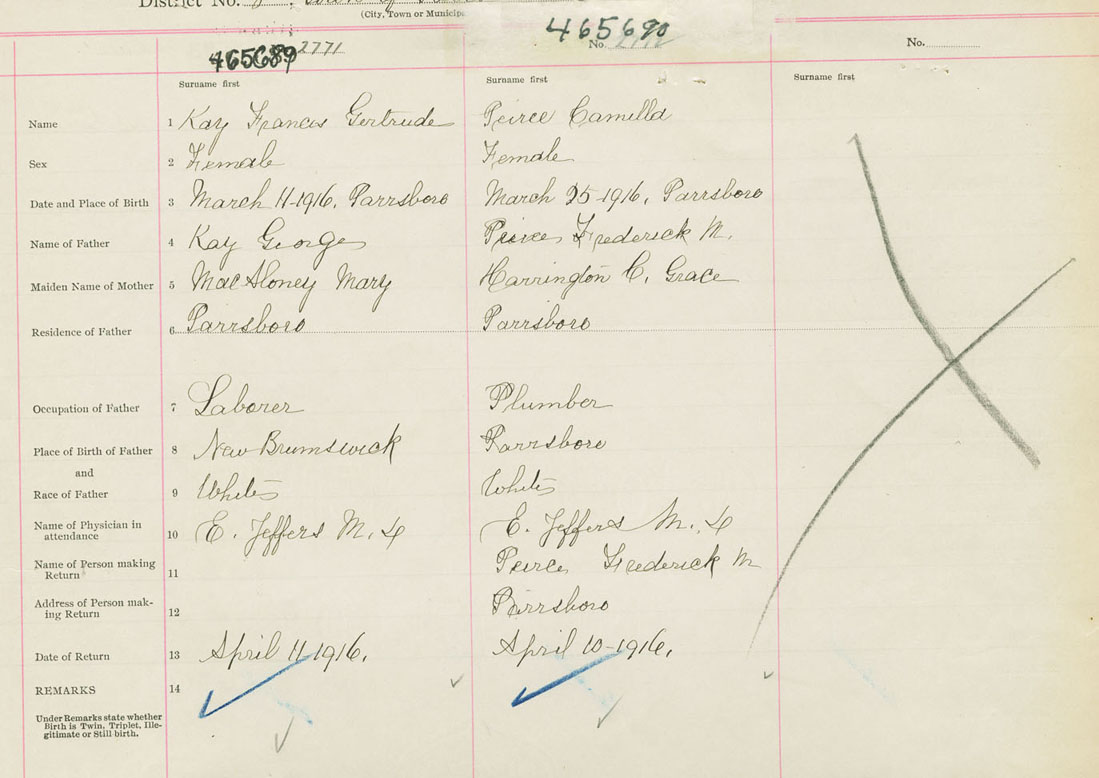 District No.
(City, Town or Municip
465689 2771
465690
No. 2772
No.
Surname first
Surname first
Surname first
Name 1 Kay Francis Gertrude Peirce Camilla
Sex 2 Female Female
Date and Place of Birth 3 March 11-1916, Parrsboro March 25-1916, Parrsboro
Name of Father 4 Kay George Peirce Frederick M.
Maiden Name of Mother 5 MacAloney Mary Harrington C. Grace
Residence of Father 6 Parrsboro Parrsboro
Occupation of Father 7 Laborer Plumber
Place of Birth of Father 8 New Brunswick Parrsboro
and
Race of Father 9 White White
Name of Physician in
attendance 10 E. Jeffers M.D E. Jeffers M.D
Name of Person making
Return 11 Peirce Frederick M
Address of Person mak-
ing Return 12 Parrsboro
Date of Return 13 April 11-1916, April 10-1916,
REMARKS 14
Under Remarks state whether
Birth is Twin, Triplet, Ille-
gitimate or Still birth.